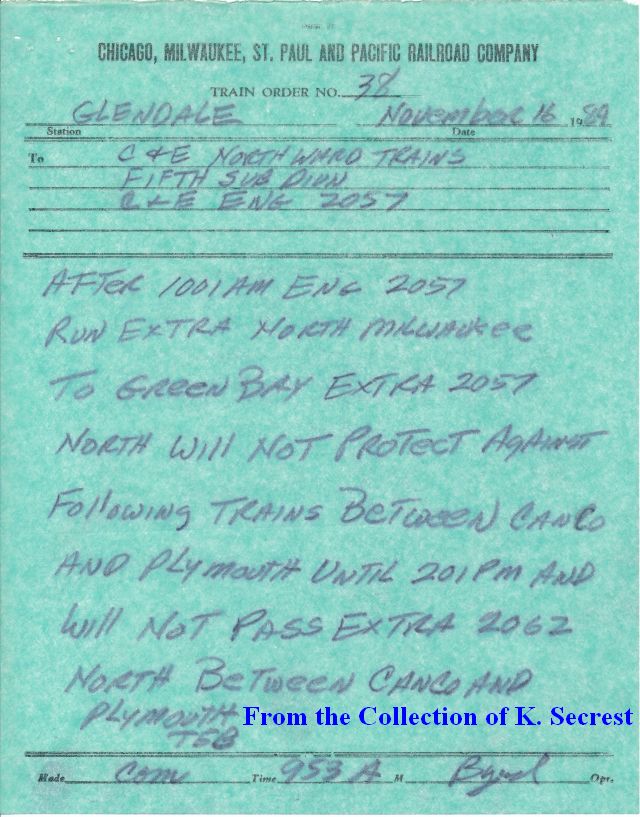 CHICAGO, MILWAUKEE, ST. PAUL AND PACIFIC RAILROAD COMPANY
TRAIN ORDER NO. 38
GLENDALE November 16 1989
Station Date
To C & E NORTHWARD TRAINS
FIFTH SUB DIVN
C & E ENG 2057
AFTER 1001 AM ENG 2057
RUN EXTRA NORTH MILWAUKEE
TO GREEN BAY EXTRA 2057
NORTH WILL NOT PROTECT AGAINST
FOLLOWING TRAINS BETWEEN CANCO
AND PLYMOUTH UNTIL 201 PM AND
WILL NOT PASS EXTRA 2062
NORTH BETWEEN CANCO AND
PLYMOUTH From the Collection of K. Secrest
Made Com Time 953 A M Byrd Opr.